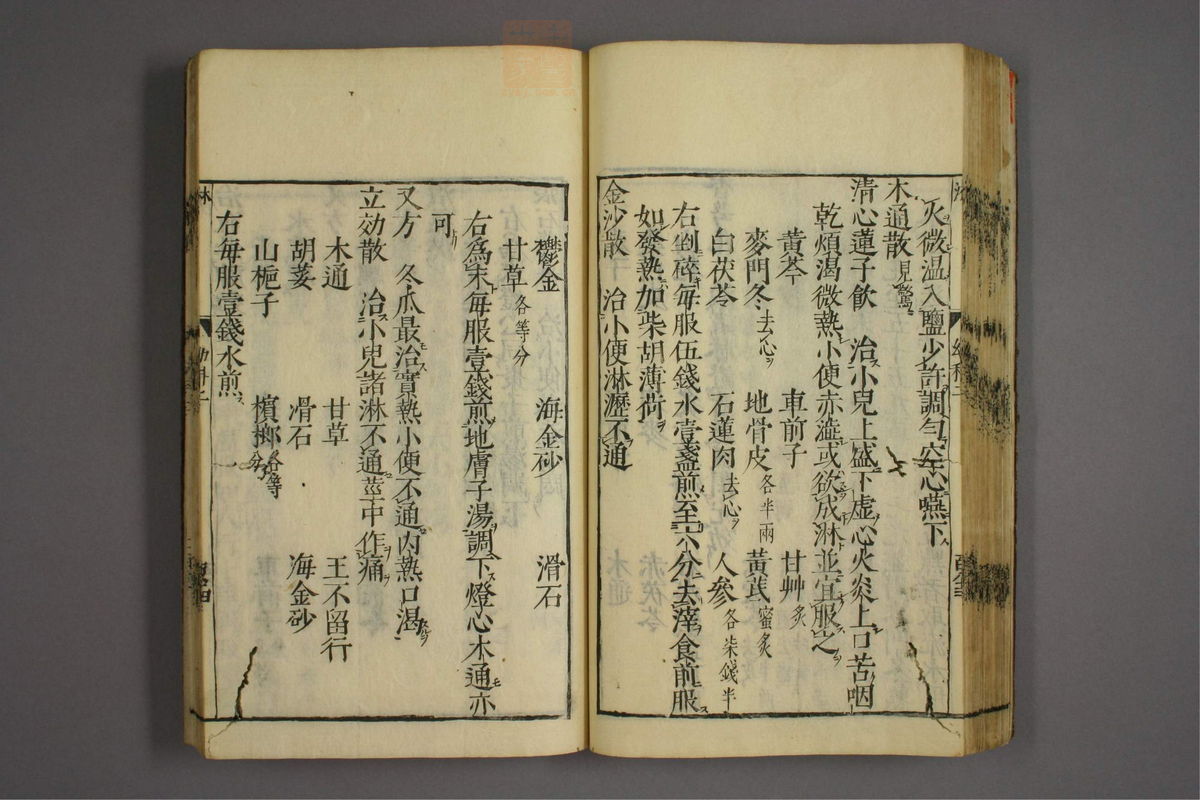 火微温入鹽少許調勻空心嚥下
木通散見驚
清心蓮子飲 治小兒上盛下虚心火炎上口苦咽
乾煩渴微熱小便赤澁或欲成淋並宜服之
黃芩 車前子 甘艸炙
麥門冬去心 地骨皮各半兩 黃芪蜜炙
白茯苓 石蓮肉去心 人參各柒錢半
右剉碎每服伍錢水壹盞煎至六分去滓食前服
如發熱加柴胡薄荷
金沙散 治小便淋瀝不通
鬱金 海金砂 滑石
甘草各等分
右為末每服壹錢煎地膚子湯調下燈心木通亦
可
又方 冬瓜最治實熱小便不通内熱口渴
立効散 治小兒諸淋不通莖中作痛
木通 甘草 王不留行
胡荽 滑石 海金砂
山梔子 檳榔各等分
右每服壹錢水煎